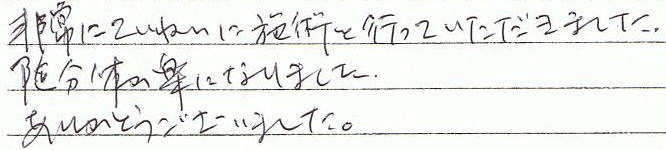 非常にていねいに施術を行っていただきました。
随分体が楽になりました。
ありがとうございました。